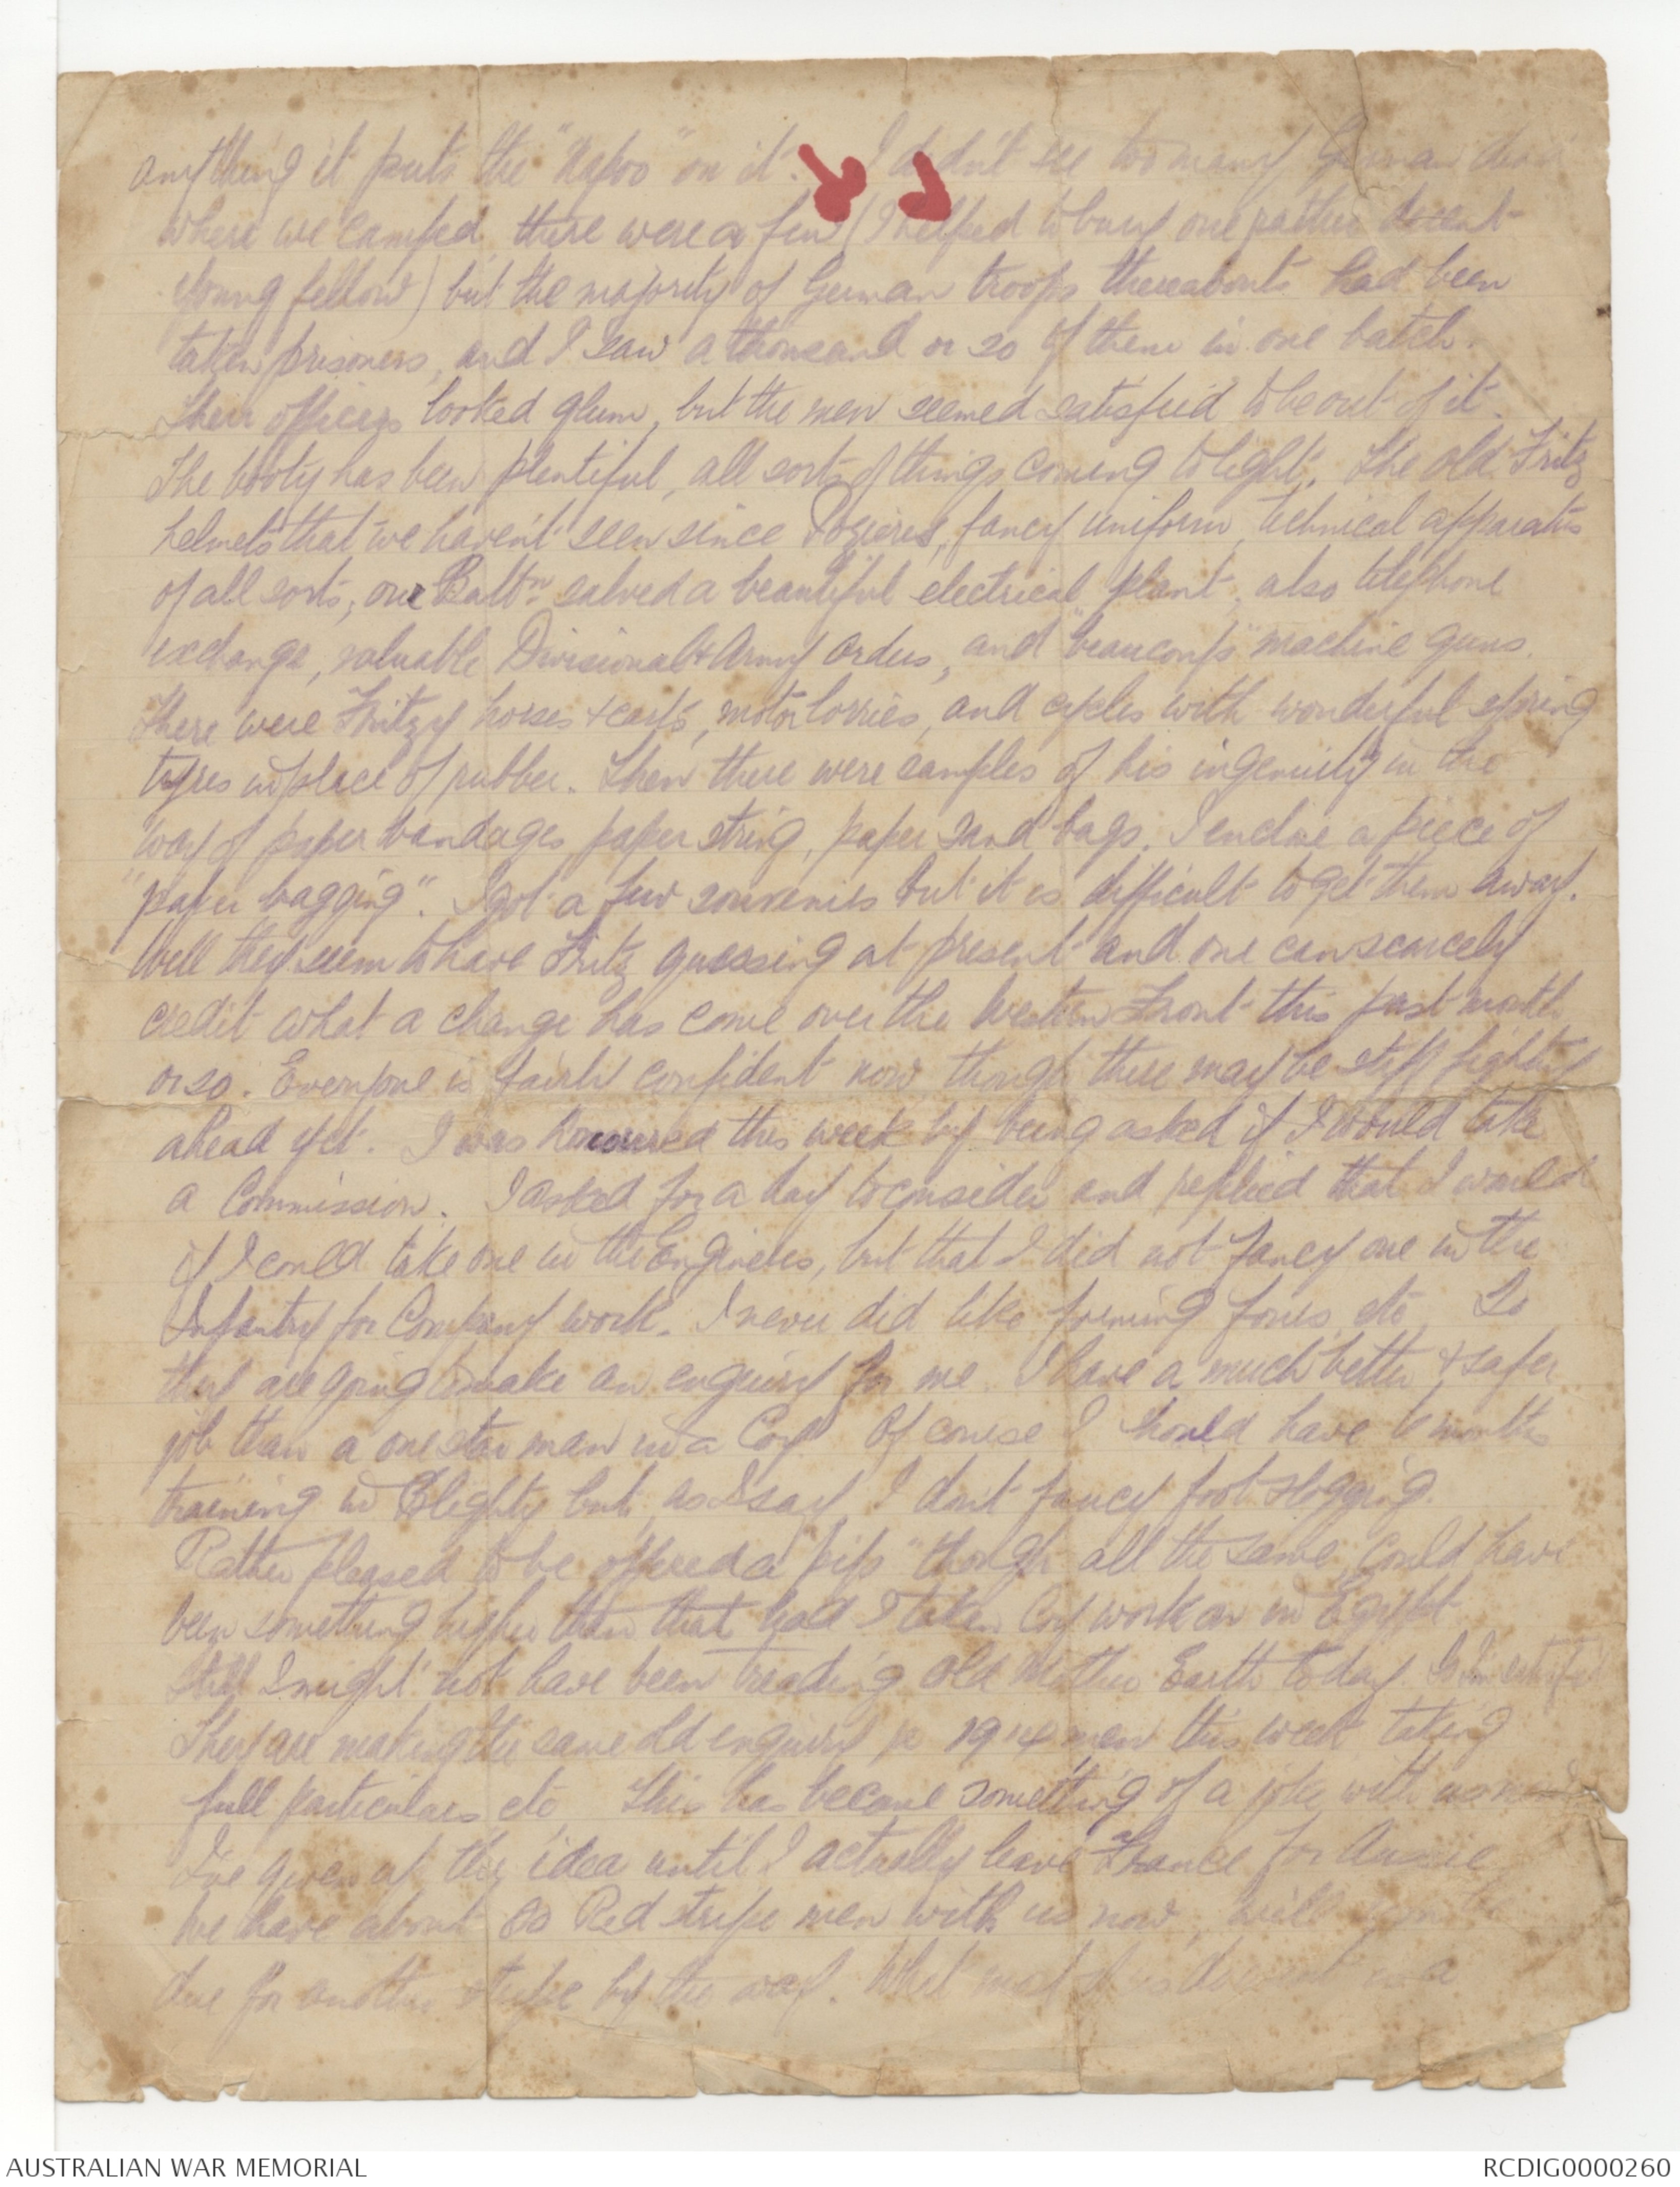 anything it puts the "Napoo" on it. I didn't see too many German dead
where we camped, there were a few (I helped to bury one rather decent
young fellow) but the majority of German troops thereabouts had been
taken prisoners, and I saw a thousand or so of them in one batch.
Their officers looked glum, but the men seemed satisfied to be out of it.
The booty has been plentiful, all sorts of things coming to light. The old Fritz
helmets that we haven't seen since Pozieres, fancy uniform, technical apparatus
of all sorts, our Battn. salved a beautiful electrical plant, also telephone
exchange, valuable Divisional & Army Orders, and "beaucoup" machine guns.
There were Fritzy horses & carts, motor lorries, and cycles with wonderful spring
tyres in place of rubber. Then there were samples of his ingenuity in the
way of paper bandages, paper string, paper sand bags. I enclose a piece of
"paper bagging". I got a few souvenirs but it is difficult to get them away.
Well they seem to have Fritz guessing at present and one can scarcely
credit what a change has come over the Western Front this past month
or so. Everyone is fairly confident now though there may be stiff fighting
ahead yet. I was honoured this week by being asked if I would take
a Commission. I asked for a day to consider and replied that I would
if I could take one in the Engineers, but that I did not fancy one in the
Infantry for Company work. I never did like forming fours, etc. So
they are going to make an enquiry for me. I have a much better & safer
job than a one star man in a Coy. Of course I should have 6 months
training in Blighty but, as I say, I don't fancy foot slogging.
Rather pleased to be offered a "pip" though all the same, could have
been something higher than that had I taken Coy work on in Egypt
Still I might not have been treading old Mother Earth today. So I'm satisfied
They are making the same old enquiry re 1914 men this week taking
full particulars, etc. This has become something of a joke with us
I've given up the idea until I actually leave France for Aussie
We have about 80 Red stripe men with us now, will
due for another stripe by the way. What